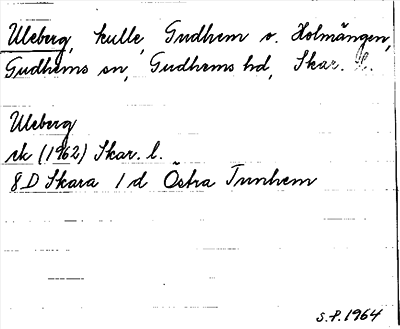 Uleberg, kulle, Gudhem o. Holmängen,
Gudhems sn, Gudhems hd, Skar. l.
Uleberg
ek (1962) Skar. l.
8D Skara 1 d Östra Tunhem
S.P. 1964